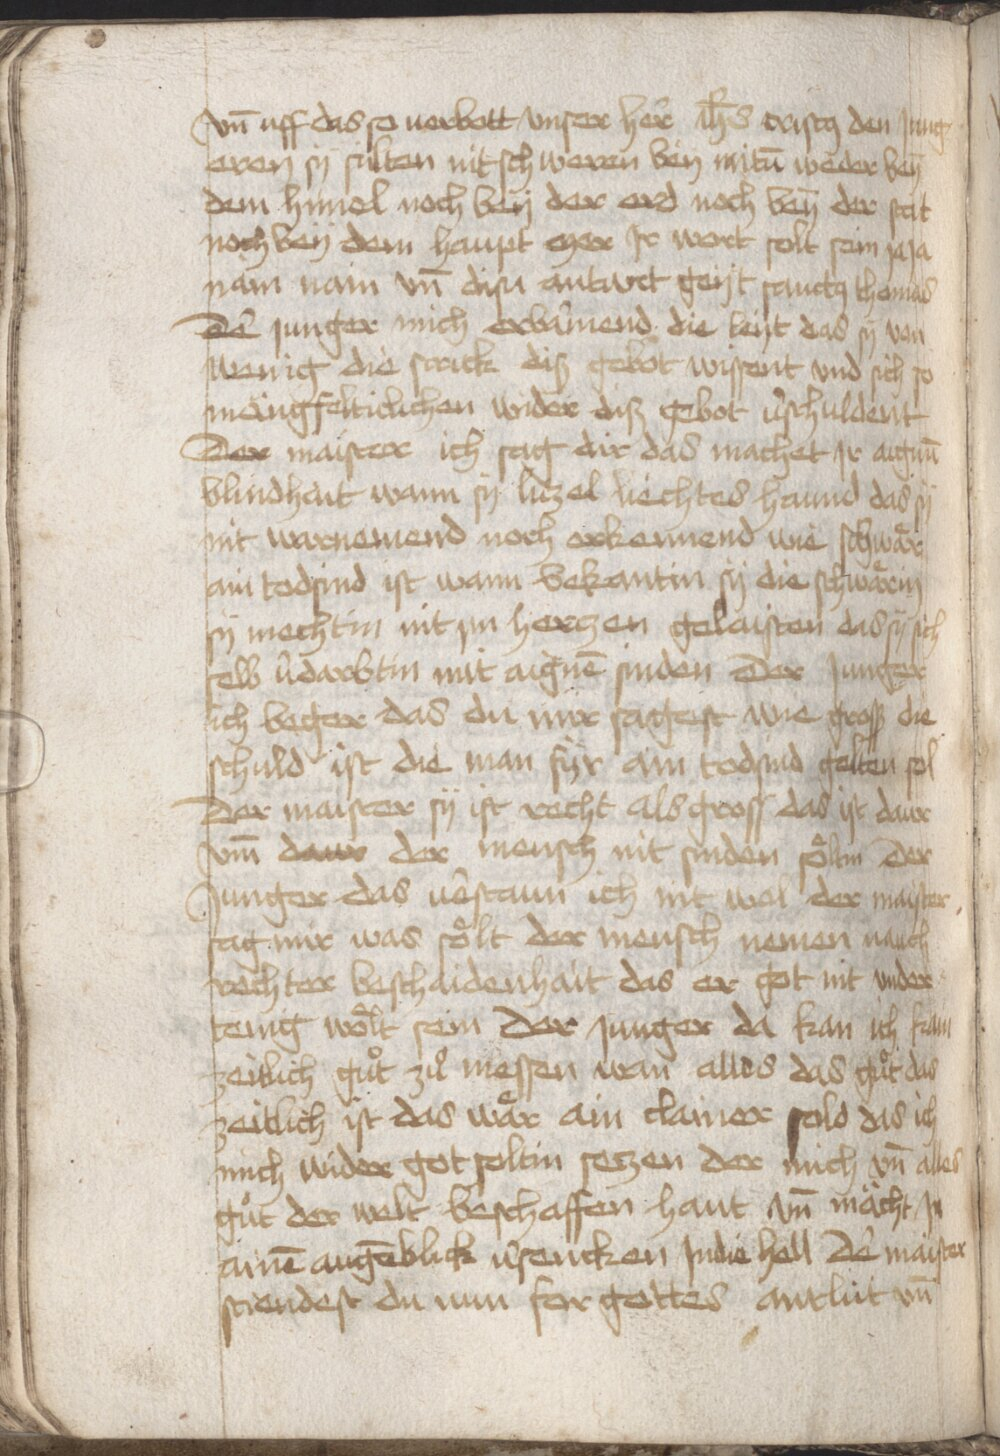 vn̄ uff das so verbott vnser her̄ ih̄s cristꝯ den Jung
eren sÿ sülten nit schweren beÿ nitū weder beÿ
dem himel noch beÿ der erd noch beÿ der stat
noch beÿ dem haupt mer Jr wort solt sein ja ja
nain nain vn̄ disu antwrt geyt sanctꝯ thomas
De᷑ junger mich erbarmend die leyt das sÿ von
wenig die strick diß gebot wissent vnd sich so
mängffelticlichen wider diß gebot v᷑schuldent
Der maister ich sag dir das machet Jr aignū
blindhait wann sÿ lüzel liechtes haund das sÿ
nit warnemend noch erkennend wie schwär
ain todsünd ist wann bekantin sÿ die schwärin
sÿ mechtin nit jm herczen gelaisten das sÿ sich
selb v᷑darbtin mit aignē sünden Der Junger
ich beger das du mir sagest wie groß die
schuld ist die man für ain todsünd gelten sol
Der maister sÿ ist recht als gross das ist daur
vm̄ daur der mensch nit sünden söltin Der
Junger das v᷑staun ich nit wol der maister
sag mir was sölt der mensch nemen nauch
rechter beschaidenhait das er got nit vnder
tenig wölt sein Der Junger da kan ich kain
zeitlich gůt zů messen wan alles das gůt das
zeitlich ist das wär ain clainer sold das ich
mich wider got soltin seczen der mich vn̄ alles
gůt der welt beschaffen haut vn̄ mächt jn
ainē augēblick v᷑sencken jn die hell De᷑ maister
stiendest du nun for gottes antlüt vn̄